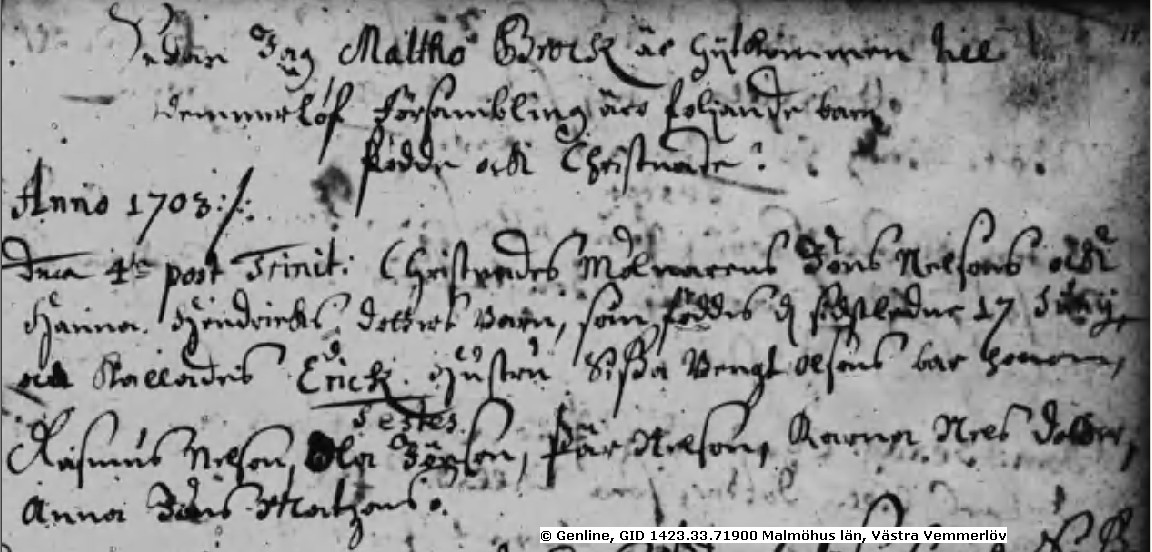 Sedan Jag Matthó Brock är hytkommen till
Wemmerlöf Försambling äro foljande barn
födde och Christnade:
Anno 1703:/:
Dnca 4ta post Trinit: Christnades Mölnarens Jöns Nelsons och
Hanna Hendricks dotters barn, som föddis d sidstledne 17 Junij,
och Kallades Erick. Hustru Sissa Bengt Olsons bar honom,
Testes.
Rasmus Nelson, Ola Jönson, Pär Nelson, Karna Nels dotter,
Anna Jöns Matzons.
© Genline, GID 1423.33.71900 Malmöhus län, Västra Vemmerlöv